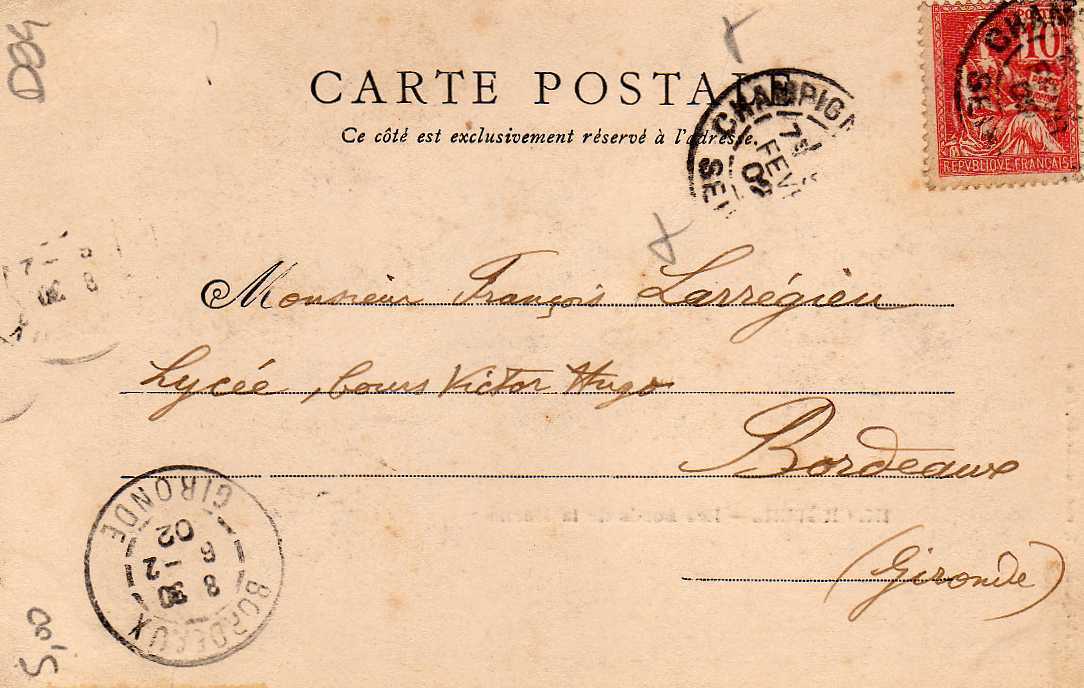 D84
CARTE POSTALE
Ce côté est exclusivement réservé à l'adresse.
CHAMPIGN
7E
FEVR
02
SEI
10
REPVBLIQVE FRANÇAISE
CHAM
SEIN
Monsieur François Larrégieu
Lycée, Cours Victor Hugo
Bordeaux
(Gironde)
BORDEAUX
8 30
6 -2
02
GIRONDE
5,00